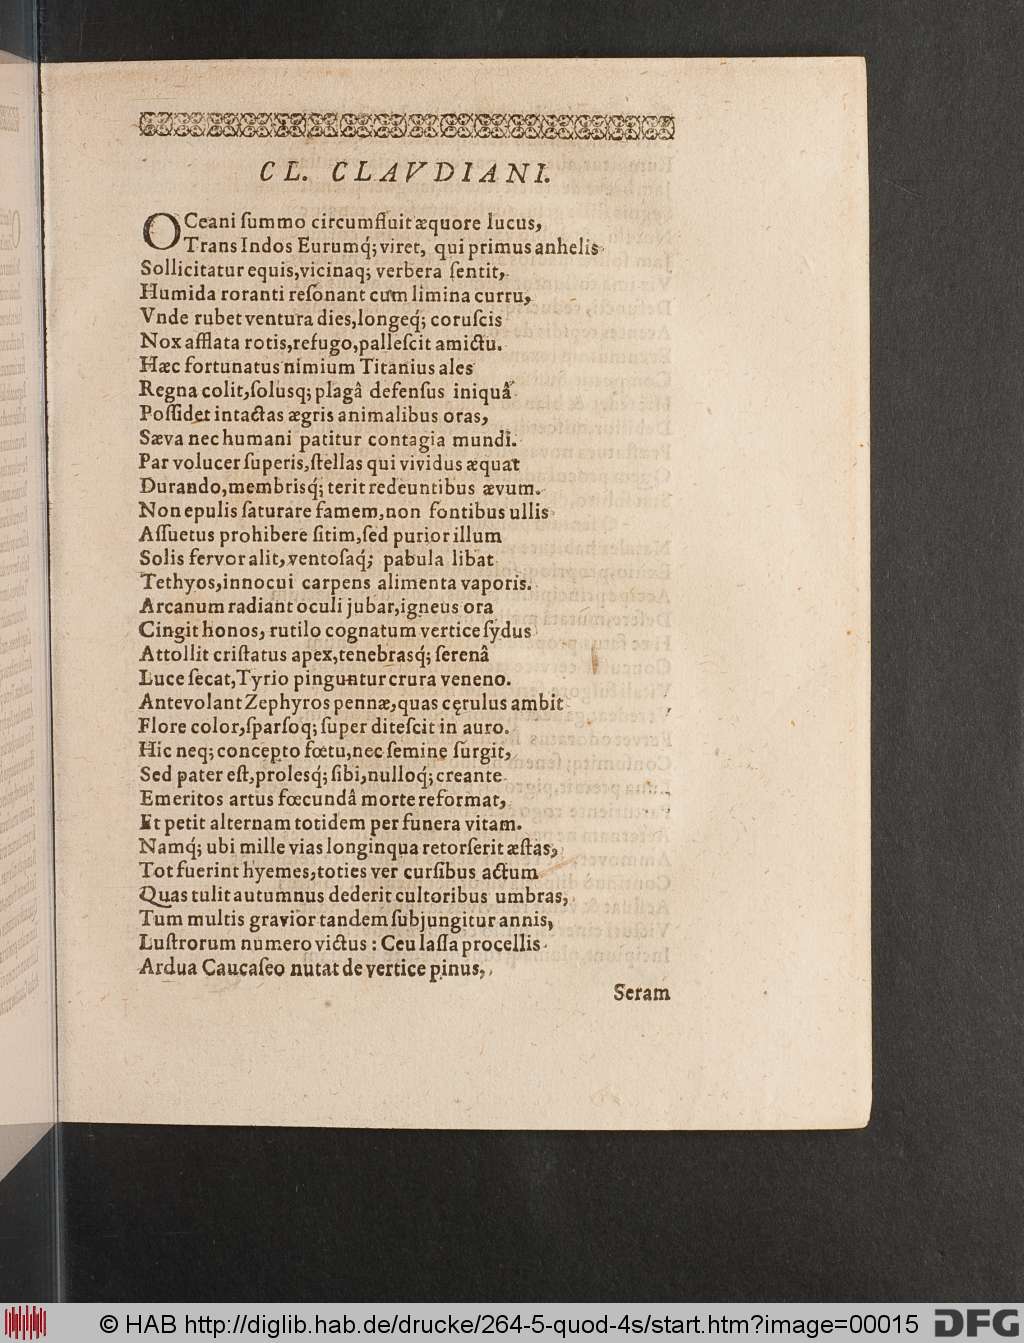 CL. CLAVDIANI.
OCeani ſummo circumfluit æquore lucus,
Trans Indos Eurumq́; viret, qui primus anhelis
Sollicitatur equis, vicinaq; verbera ſentit,
Humida roranti reſonant cum limina curru,
Vnde rubet ventura dies, longeq́; coruſcis
Nox afflata rotis, refugo, palleſcit amictu.
Hæc fortunatus nimium Titanius ales
Regna colit, ſolusq; plagâ defenſus iniquâ
Poſſidet intactas ægris animalibus oras,
Sæva nec humani patitur contagia mundi.
Par volucer ſuperis, ſtellas qui vividus æquat
Durando, membrisq́; terit redeuntibus ævum.
Non epulis ſaturare famem, non fontibus ullis
Aſſuetus prohibere ſitim, ſed purior illum
Solis fervor alit, ventoſaq́; pabula libat
Tethyos, innocui carpens alimenta vaporis.
Arcanum radiant oculi jubar, igneus ora
Cingit honos, rutilo cognatum vertice ſydus
Attollit criſtatus apex, tenebrasq́; ſerenâ
Luce ſecat, Tyrio pinguntur crura veneno.
Antevolant Zephyros pennæ, quas cęrulus ambit
Flore color, ſparſoq; ſuper diteſcit in auro.
Hic neq; concepto fœtu, nec ſemine ſurgit,
Sed pater eſt, prolesq́; ſibi, nulloq́; creante
Emeritos artus fœcundâ morte reformat,
Et petit alternam totidem per funera vitam.
Namq́; ubi mille vias longinqua retorſerit æſtas,
Tot fuerint hyemes, toties ver curſibus actum
Quas tulit autumnus dederit cultoribus umbras,
Tum multis gravior tandem ſubjungitur annis,
Luſtrorum numero victus : Ceu laſſa procellis
Ardua Caucaſeo nutat de vertice pinus,
Seram
© HAB http://diglib.hab.de/drucke/264-5-quod-4s/start.htm?image=00015
DFG